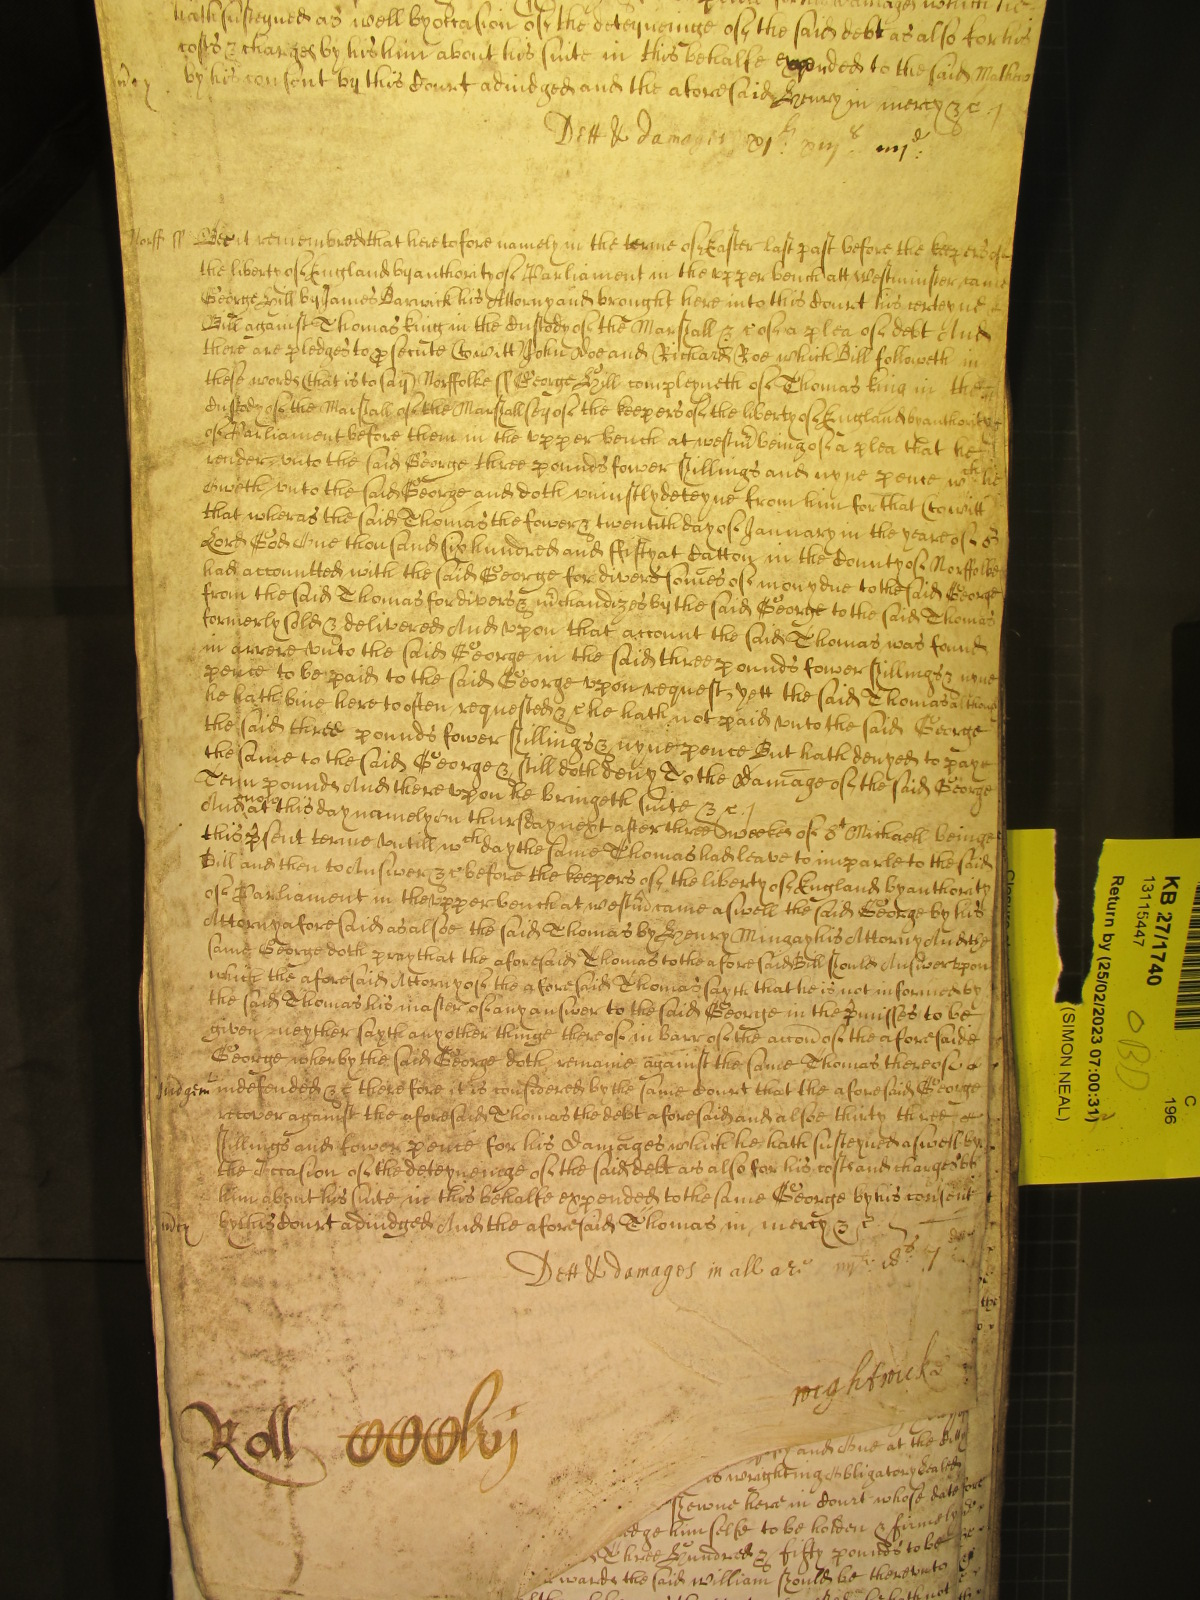 hath susteyned as well by occasion of the deteyneinge of the said debt as also for his
costs & charges by his him about his suite in this behalfe expended to the said Mathew
by his consent by this Court adiudged and the aforesaid Henry in mercy &c
m̄cy
Dett & damages xjˡⁱ xiijˢ iiijᵈ
Norff ss Bee it remembred that heretofore namely in the terme of Easter last past before the keepers of
the liberty of England by authority of Parliament in the vpper bench att Westminster came
George Hill by James Barwick his Attorny and brought here into this Court his certeyne
Bill against Thomas king in the Custody of the Marshall &c of a plea of debt And
there are pledges to p̱secute (to witt) John Doe and Richard Roe which Bill followeth in
these words (that is to say) Norffolke ss George Hill compleyneth of Thomas king in the
Custody of the Marshall of the Marshallsey of the keepers of the liberty of England by authority
of Parliament before them in the vpper bench at westm̄ being of a plea that he
render vnto the said George three pounds fower shillings and nyne pence wᶜʰ he
oweth vnto the said George and doth vniustly deteyne from him for that (to witt)
that wheras the said Thomas the fower & twentith day of January in the yeare of oʳ
Lord God One thousand six hundred and fifty at Catton in the County of Norffolke
had accountted with the said George for divers somes of mony due to the said George
from the said Thomas for divers m̄chandizes by the said George to the said Thomas
formerly sold & delivered And vpon that account the said Thomas was found
in arrere vnto the said George in the said three pounds fower shillings & nyne
pence to be paid to the said George vpon request, yett the said Thomas although
he hath bine hereto often requested &c he hath not paid vnto the said George
the said three pounds fower shillings & nyne pence But hath denyed to pay
the same to the said George & still doth deny To the damage of the said George
Tenn pounds And there vpon he bringeth suite &c
And now at this day namely on thursday next after three weekes of Sᵗ Michaell beinge
this p̱sent terme vntill wᶜʰ day the same Thomas had leave to imparle to the said
Bill and then to Answer &c before the keepers of the liberty of England by authority
of Parliament in the vpper bench at westm̄ came aswell the said George by his
Attorny aforesaid as alsoe the said Thomas by Henry Mingay his Attorny And the
same George doth pray that the aforesaid Thomas to the aforesaid Bill should Answer vpon
which the aforesaid Attorny of the aforesaid Thomas sayth that he is not informed by
the said Thomas his master of any answer to the said George in the p̱misses to be
given neyther sayth any other thinge thereof in barr of the accōn of the aforesaide
George wherby the said George doth remaine against the same Thomas thereof
Judgem̄ indefended &c therefore it is considered by the same Court that the aforesaid George
recover against the aforesaid Thomas the debt aforesaid and alsoe thirty three
shillings and fower pence for his Damages which he hath susteyned aswell by
the Occasion of the deteyneinge of the said debt as also for his costs and charges by
him about his suite in this behalfe expended to the same George by his consent
m̄cy by this Court adiudged And the aforesaid Thomas in mercy &c
Dett & damages in all are
Roll CCClvj
and One at the
wrighting Obligatory sealed
shewne here in Court whose date
himselfe to be holden & firmely
Three Hundred & fifty pounds to be
wards the said William should be therevnto
KB 27/1740
13115447
Return by (25/02/2023 07:00:31)
(SIMON NEAL)
C
196